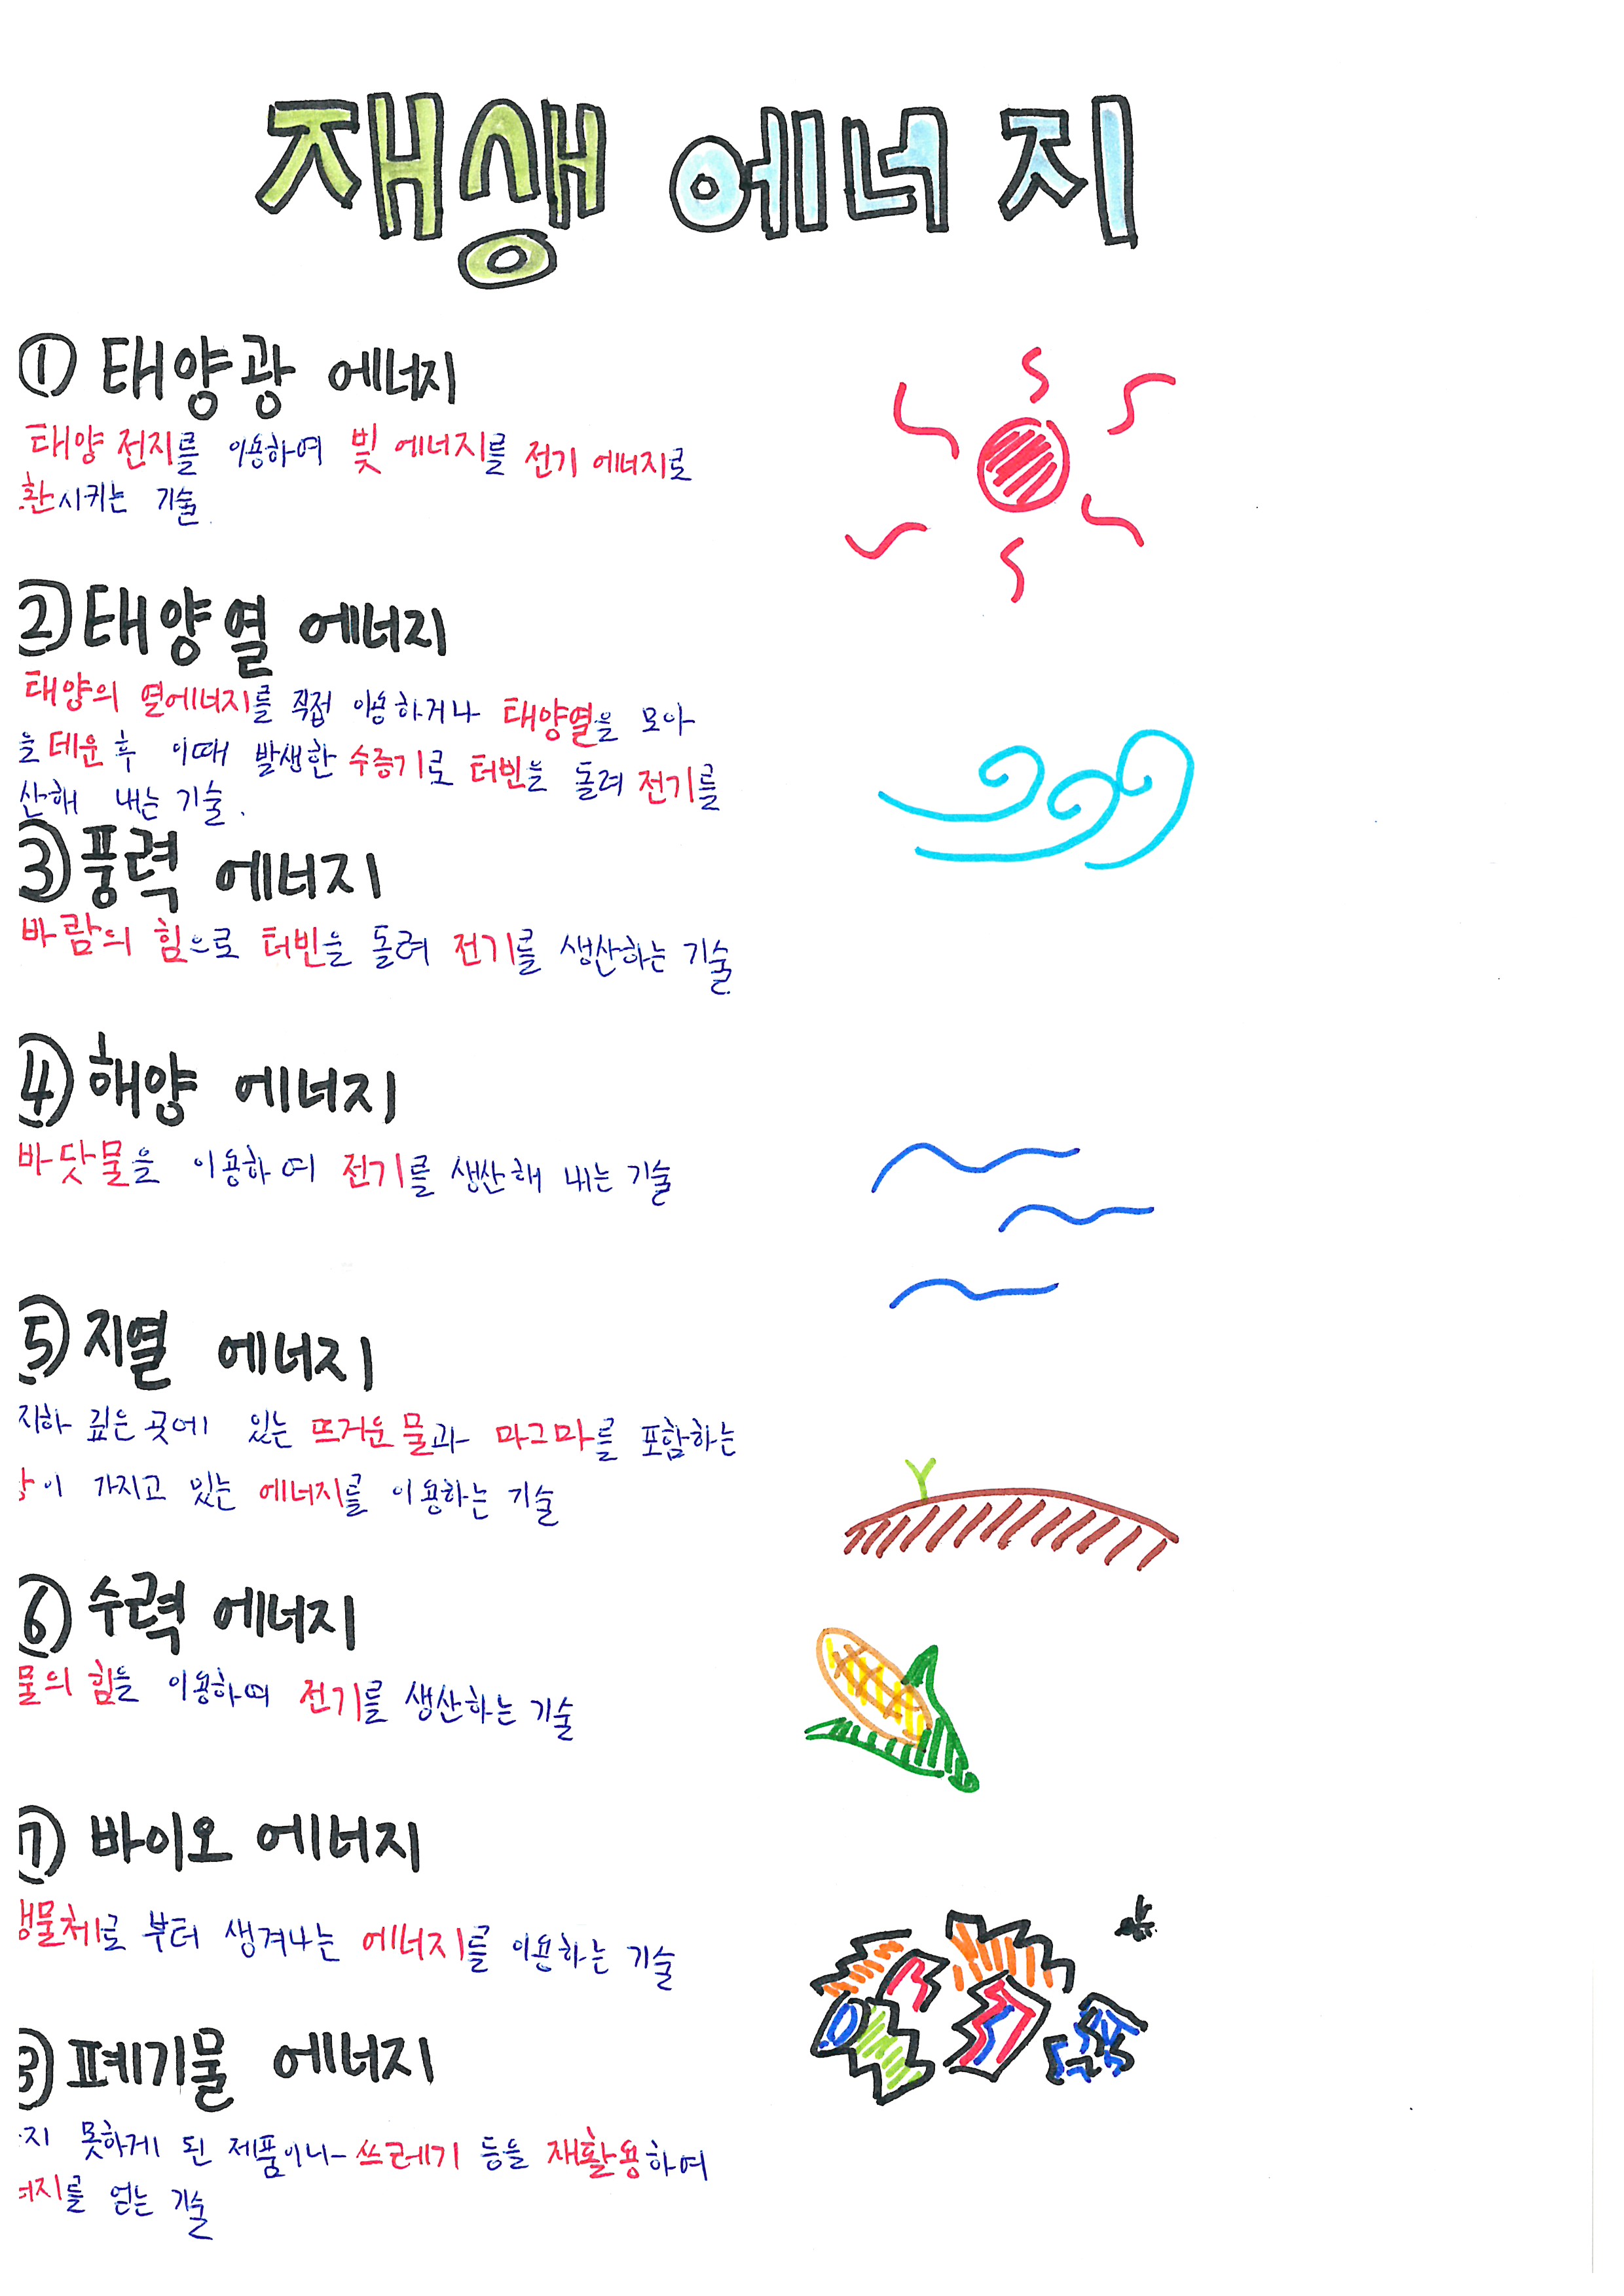 재생 에너지
① 태양광 에너지
태양 전지를 이용하여 빛 에너지를 전기 에너지로
환시키는 기술
② 태양열 에너지
태양의 열에너지를 직접 이용하거나 태양열을 모아
을 데운 후 이때 발생한 수증기로 터빈을 돌려 전기를
산해 내는 기술.
③ 풍력 에너지
바람의 힘으로 터빈을 돌려 전기를 생산하는 기술
④ 해양 에너지
바닷물을 이용하여 전기를 생산해 내는 기술
⑤ 지열 에너지
지하 깊은 곳에 있는 뜨거운 물과 마그마를 포함하는
이 가지고 있는 에너지를 이용하는 기술
⑥ 수력 에너지
물의 힘을 이용하여 전기를 생산하는 기술
⑦ 바이오 에너지
생물체로 부터 생겨나는 에너지를 이용하는 기술
⑧ 폐기물 에너지
지 못하게 된 제품이나 쓰레기 등을 재활용하여
너지를 얻는 기술